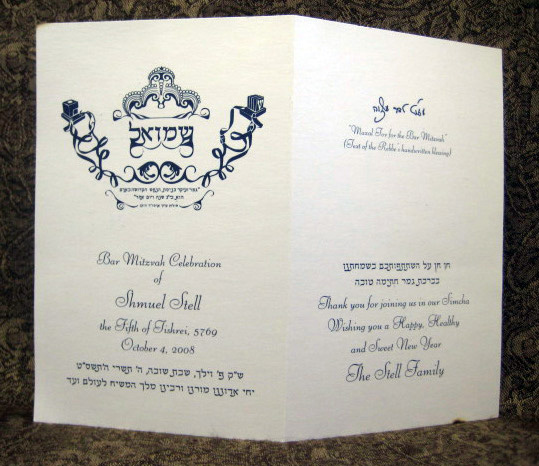 שמואל
"גמר ועיקר כניסת הנפש הקדושה באדם
הוא בי"ג שנה ויום אחד"
Bar Mitzvah Celebration
of
Shmuel Stell
the Fifth of Tishrei, 5769
October 4, 2008
ש"ק פ' וילך, שבת שובה, ה' תשרי ה'תשס"ט
יחי אדוננו מורנו ורבינו מלך המשיח לעולם ועד
"Mazal Tov for the Bar Mitzvah"
(Text of the Rebbe's handwritten blessing)
חן חן על השתתפותכם בשמחתנו
בברכת גמר חתימה טובה
Thank you for joining us in our Simcha
Wishing you a Happy, Healthy
and Sweet New Year
The Stell Family